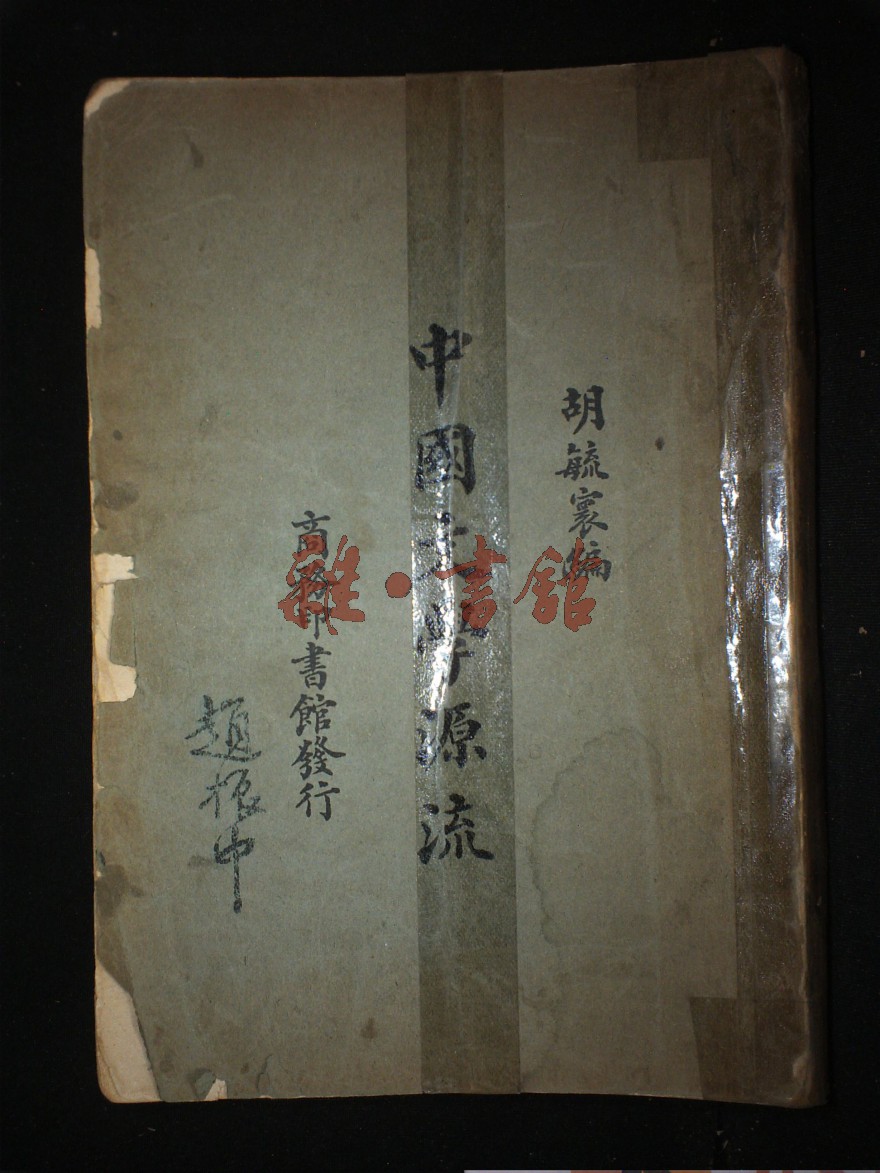 胡毓寰編
中國文學源流
商務印書館發行
趙振中
雜·書館